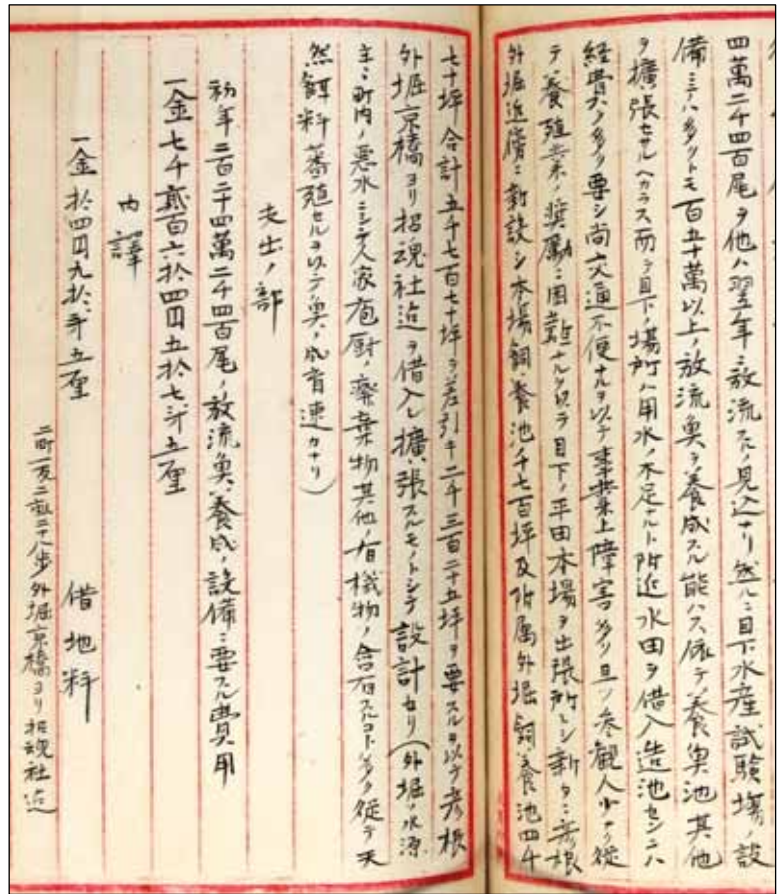 四萬二千四百尾ヲ他ハ翌年ニ放流スルノ見込ナリ然ルニ目下水産試験場ノ設
備ニテハ多クトモ百五十萬以上ノ放流魚ヲ養成スル能ハス依テ養魚池其他
ヲ擴張セサルヘカラス而テ目下ノ場所ハ用水ノ不足ナルト附近水田ヲ借入造池センニハ
経費ノ多クヲ要シ尚交通不便ナルヲ以テ事業上障害多ク且ツ参観人少ナク従
テ養殖業ノ奨勵ニ困難ナルヲ以テ目下ノ平田本場ヲ出張所トシ新タニ彦根
外堀近傍ニ新設シ本場飼養池千七百坪及附属外堀飼養池四千
七十坪合計五千七百七十坪ヲ差引キ二千三百二十五坪ヲ要スルヲ以テ彦根
外堀京橋ヨリ招魂社迄ヲ借入レ擴張スルモノトシテ設計セリ(外堀ノ水源
主ニ町内ノ悪水ニシテ人家庖厨ノ廃棄物其他ノ有機物ノ含有スルコト多ク従テ天
然餌料蕃殖セルヲ以テ魚ノ成育速カナリ)
支出ノ部
初年二百二十四萬二千四百尾ノ放流魚養成ノ設備ニ要スル費用
一金七千貳百六拾四円五拾七戔五厘
内譯
一金拾四円九拾戔五厘 借地料
二町一反二畝二十八歩外堀京橋ヨリ招魂社迄